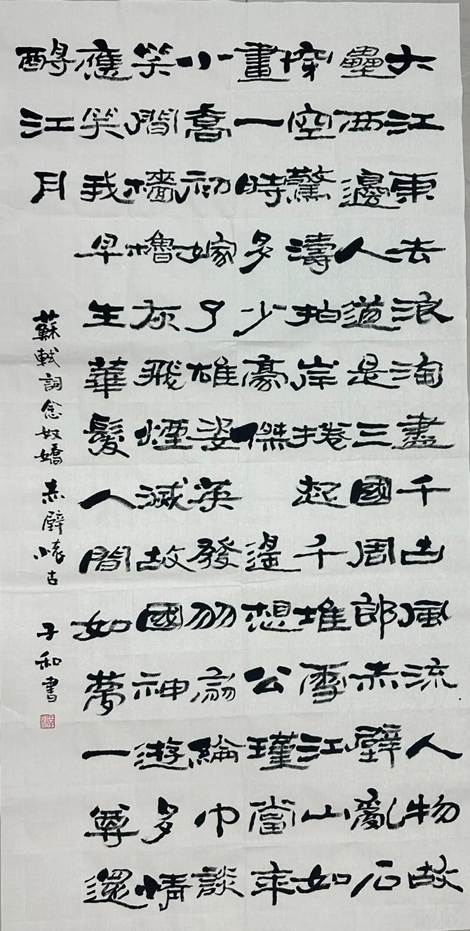 大江東去浪淘盡千古風流人物故
壘西邊人道是三國周郎赤壁亂石
穿空驚濤拍岸捲起千堆雪江山如
畫一時多少豪傑遙想公瑾當年
小喬初嫁了雄姿英發羽扇綸巾談
笑間檣櫓灰飛煙滅故國神遊多情
應笑我早生華髮人間如夢一尊還
酹江月
蘇軾詞念奴嬌赤壁懷古 子和書